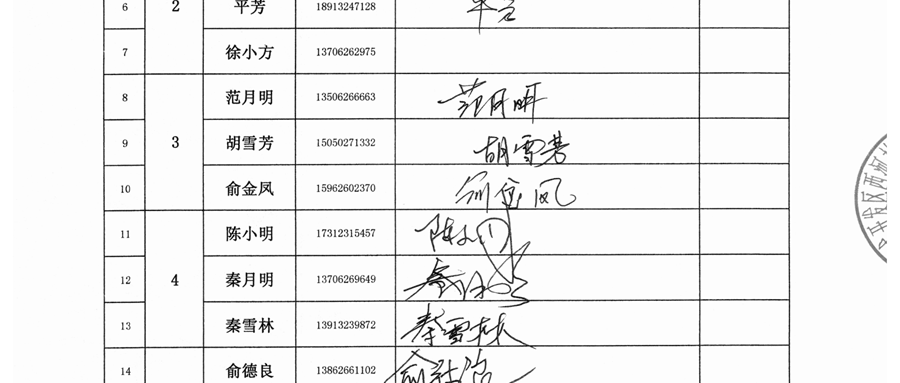 6 2 平芳 18913247128
7 徐小方 13706262975
8 范月明 13506266663 范月明
9 3 胡雪芳 15050271332 胡雪芳
10 俞金凤 15962602370 俞金凤
11 陈小明 17312315457 陈小明
12 4 秦月明 13706269649
13 秦雪林 13913239872 秦雪林
14 俞德良 13862661102
开发区西河